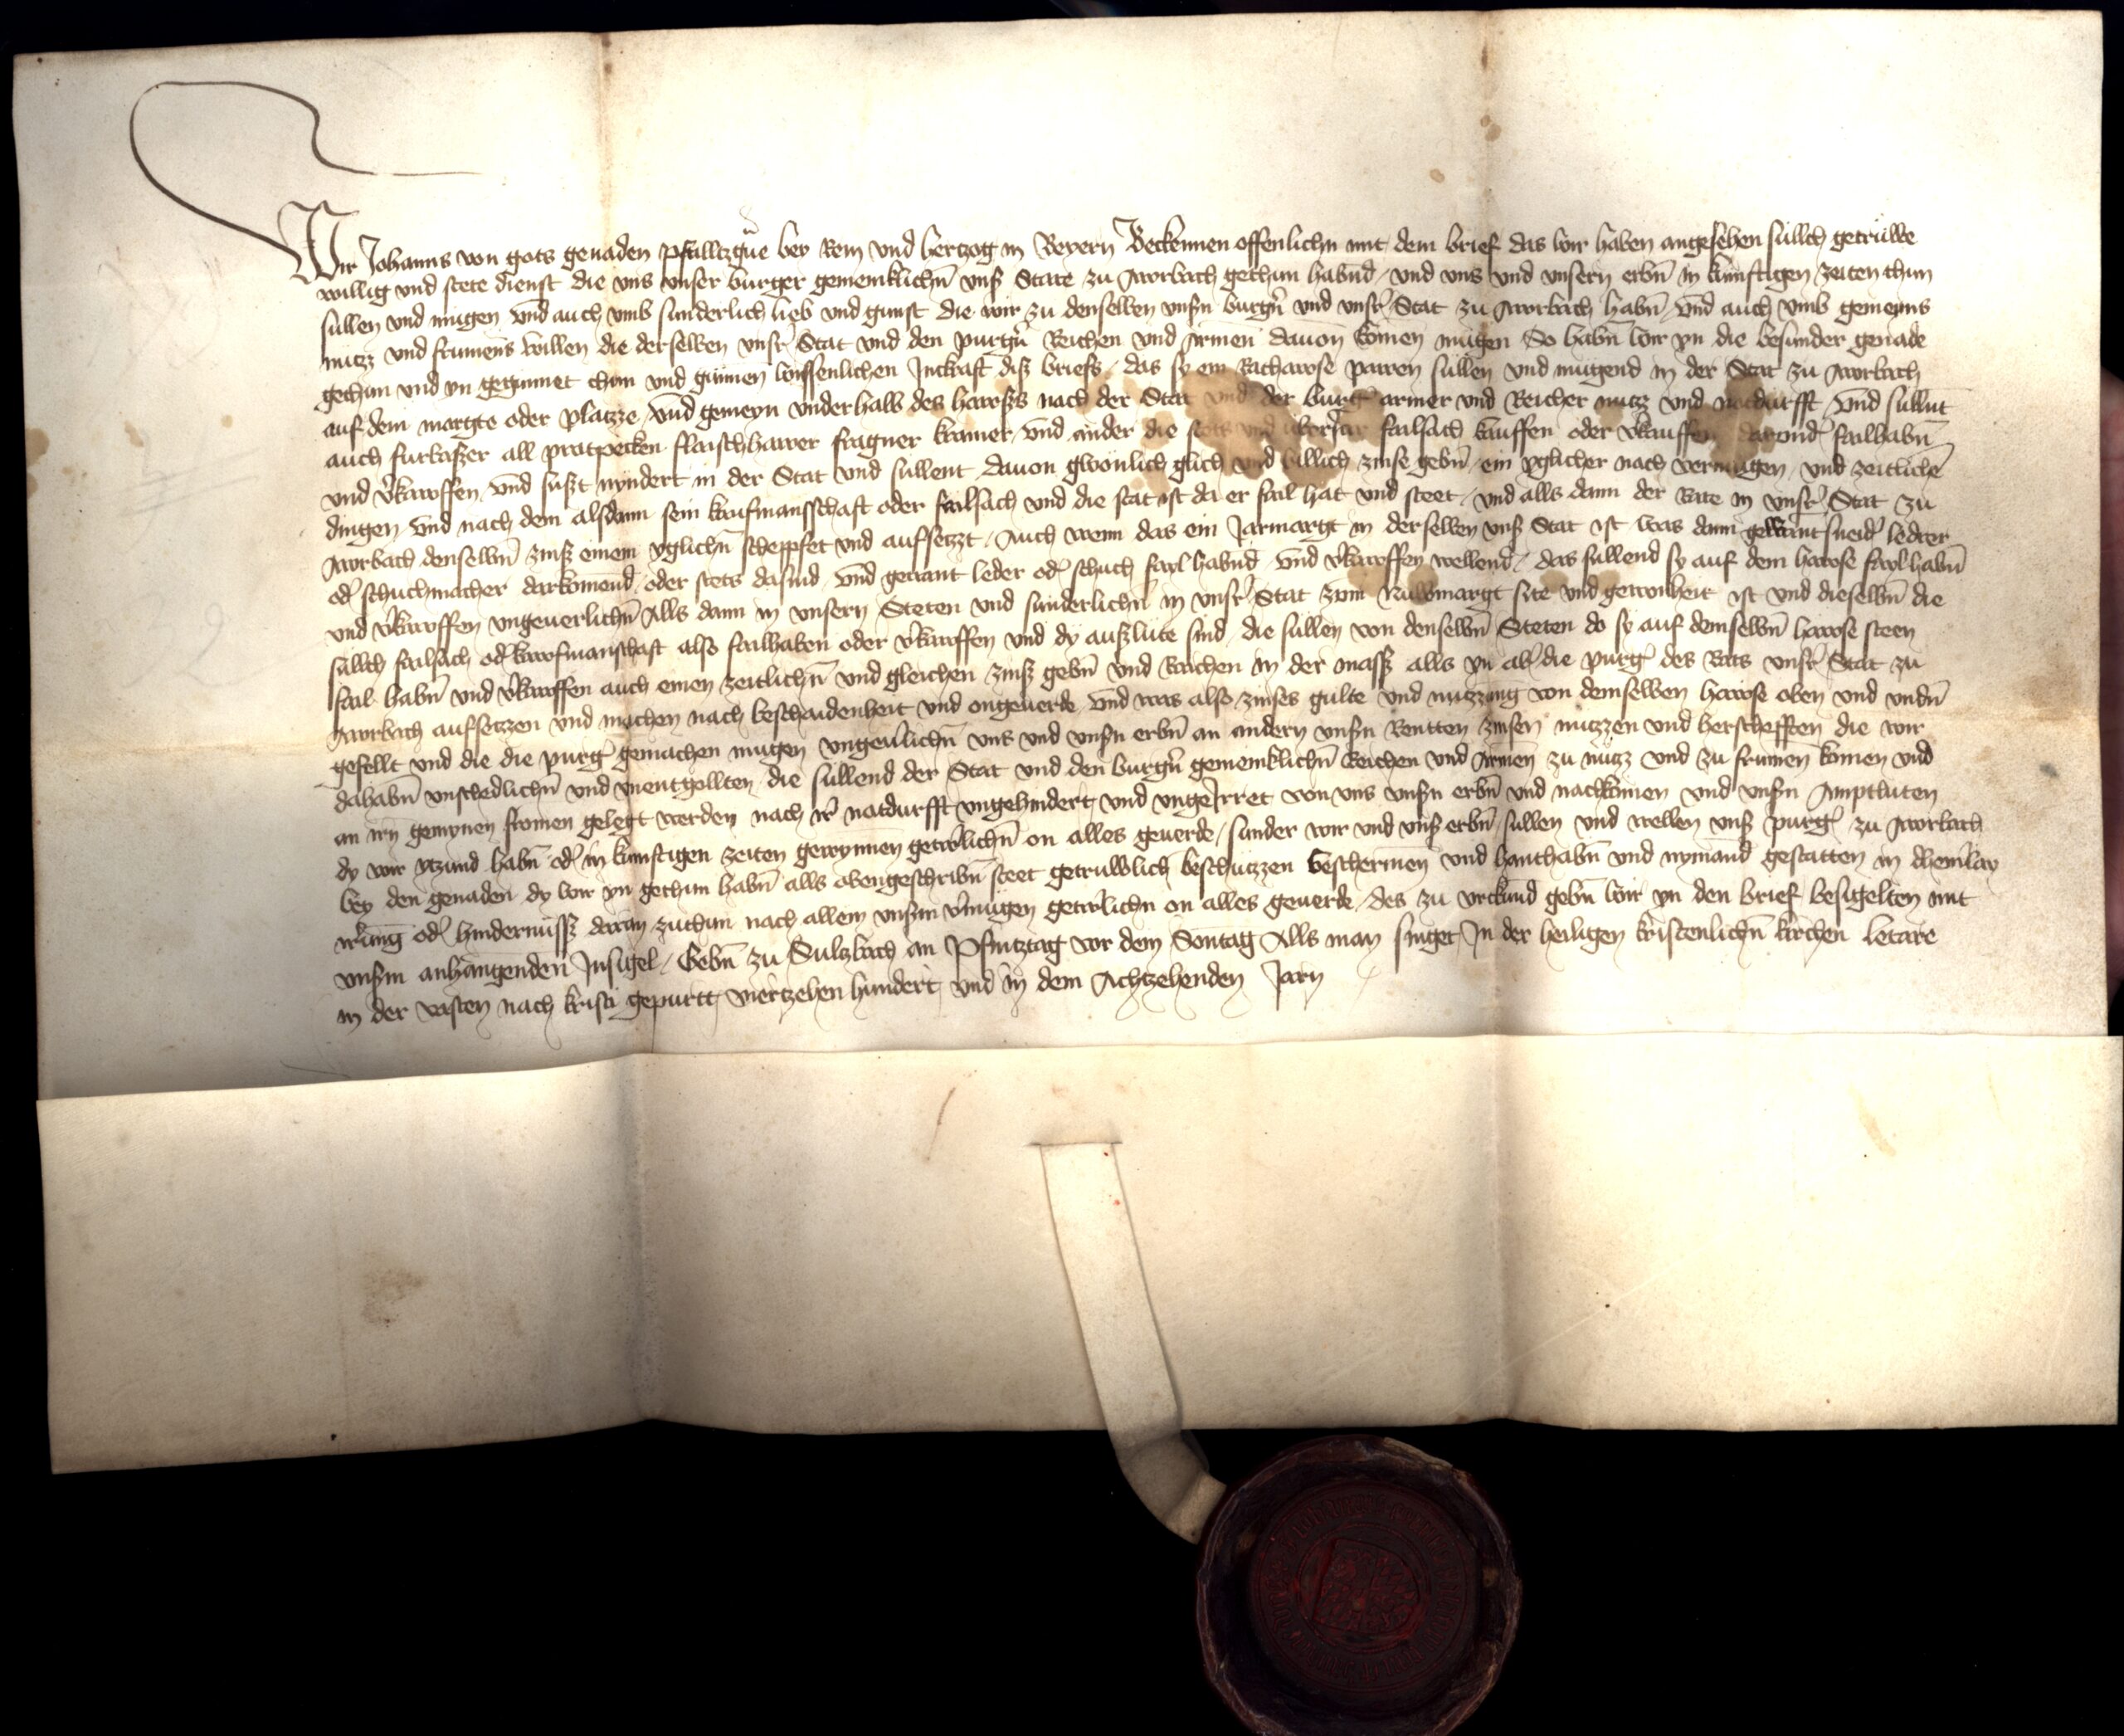 Wir Johanns von gots genaden Pfalltzgue bey Rein und hertzog in Beyern Beckennen offenlichn mit dem brief das wir haben angesehen süllch getrüwe
willig und stete dienst die uns unser burger gemeinklichn unß State zu Awrbach gethan habnd und uns und unsern erbn in künftigen zeiten thun
süllen und mügen und auch umb sunderlich lieb und gunst die wir zu denselben unsn burgn und unsr Stat zu Awrbach habn und auch umb gemeyns
nutz und frumens willen die derselben unsr Stat und den purgn Reichen und Armen dauon komen mügen So habn wir yn die besunder genade
gethan und yn gegunnet thun und günnen wissenlichen Inkraft diß briefs das sy ein Rathawse pawen süllen und mügend in der Stat zu Awrbach
auf dem margte oder platzze und gemeyn underhalb des hawßs nach der Stat und der burg armer und Reicher nutz und notdurfft und süllnt
auch furbaßer all protpecken flaischhawer fragner kramer und ander die stets und failsach kauffen oder vkauffen darund failhabn
und vkawffen und süßt nyndert in der Stat und süllent dauon gwonlich glich und billich zinse gebn ein yglicher nach vermügen und zeitlichen
dingen und nach dem alsdann sein kaufmansschaft oder failsach und die stat ist da er fail hat und steet und alls dann der Rate in unsr Stat zu
Awrbach denselbn zinß einem yglichn scheppfet und aufsetzt Auch wenn das ein Jarmargt in derselben unß Stat ist was dann gewantsneid ledrer
od schuchmacher darkomend oder stets dasind und gewant leder od schuch fayl habnd und vkawffen wellend das süllend sy auf dem hawse fayl habn
und vkawffen ungeuerlichn Alls dann in unsern Steten und sunderlichn in unsr Stat zum Nuwmargt site und gewonheit ist und dieselbn die
süllch failsach od kawfmanschaft also failhaben oder vkawffen und dy außlüte sind die süllen von denselbn Steten do sy auf demselbn hawse steen
fail habn und vkawffen auch einen zeitlichn und gleichen zinß gebn und Raichen in der masß alls yn ab die purg des Rats unsr Stat zu
Awrbach aufsetzzen und machen nach beschaidenheit und ongeuerde und was also zinses gulte und nutzzung von demselben hawse oben und undn
gefellt und die die purg gemachen mugen ungeulichn uns und unsn erbn an andern unsn Rentten zinsen nutzzen und herschefften die wir
dahabn unschedlichn und unentgollten die süllend der Stat und den burgn gemeinklichn Reichen und Armen zu nutz und zu frumen komen und
an irn gemynen fromen gelegt werden nach ir notdurfft ungehindert und ungeirret von uns unsn erbn und nachkomen und unsn Amptluten
dy wir yzund habn od in kunftigen zeiten gewynnen getrlichn on alles geuerde sunder wir und unß erbn süllen und wellen unß purg zu Awrbach
bey den genaden dy wir yn gethan habn alls obengeschribn steet getruwlich beschutzzen beschermen und hanthabn und nymand gestatten in dhemlay
irung od hindernüsß daran zuthun nach allem unsm vmügen getrlichn on alles geuerde des zu urkund gebn wir yn den brief besigelten mit
unsm anhangenden Insigel Gebn zu Sulzbach an Pfintztag vor dem Sontag Alls man singet In der heiligen kristenlichn kirchen Letare
in der vasten nach kristi gepurtt viertzehen hundert und in dem Achtzehenden Jarn